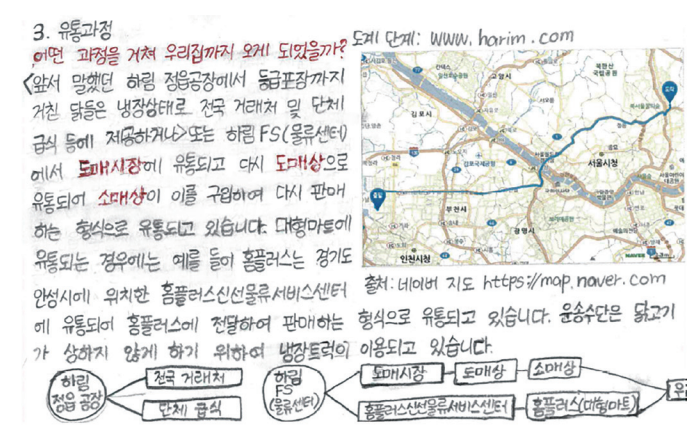 3. 유통과정
도계 단계: www.harim.com
어떤 과정을 거쳐 우리집까지 오게 되었을까?
<앞서 말했던 하림 정읍공장에서 등급포장까지
거친 닭들은 냉장상태로 전국 거래처 및 단체
급식 등에 제공하거나>또는 하림 FS(물류센터)
에서 도매시장에 유통되고 다시 도매상으로
유통되어 소매상이 이를 구입하여 다시 판매
하는 형식으로 유통되고 있습니다. 대형마트에
유통되는 경우에는 예를 들어 홈플러스는 경기도
안성시에 위치한 홈플러스신선물류서비스센터
에 유통되어 홈플러스에 전달하여 판매하는 형식으로 유통되고 있습니다. 운송수단은 닭고기
가 상하지 않게 하기 위하여 냉장트럭이 이용되고 있습니다.
고양시
김포시
서울시청
부천시
광명시
인천시청
NAVER
출처: 네이버 지도 https://map.naver.com
하림
정읍 공장
전국 거래처
단체 급식
하림
FS
(물류센터)
도매시장
도매상
소매상
홈플러스신선물류서비스센터
홈플러스(대형마트)